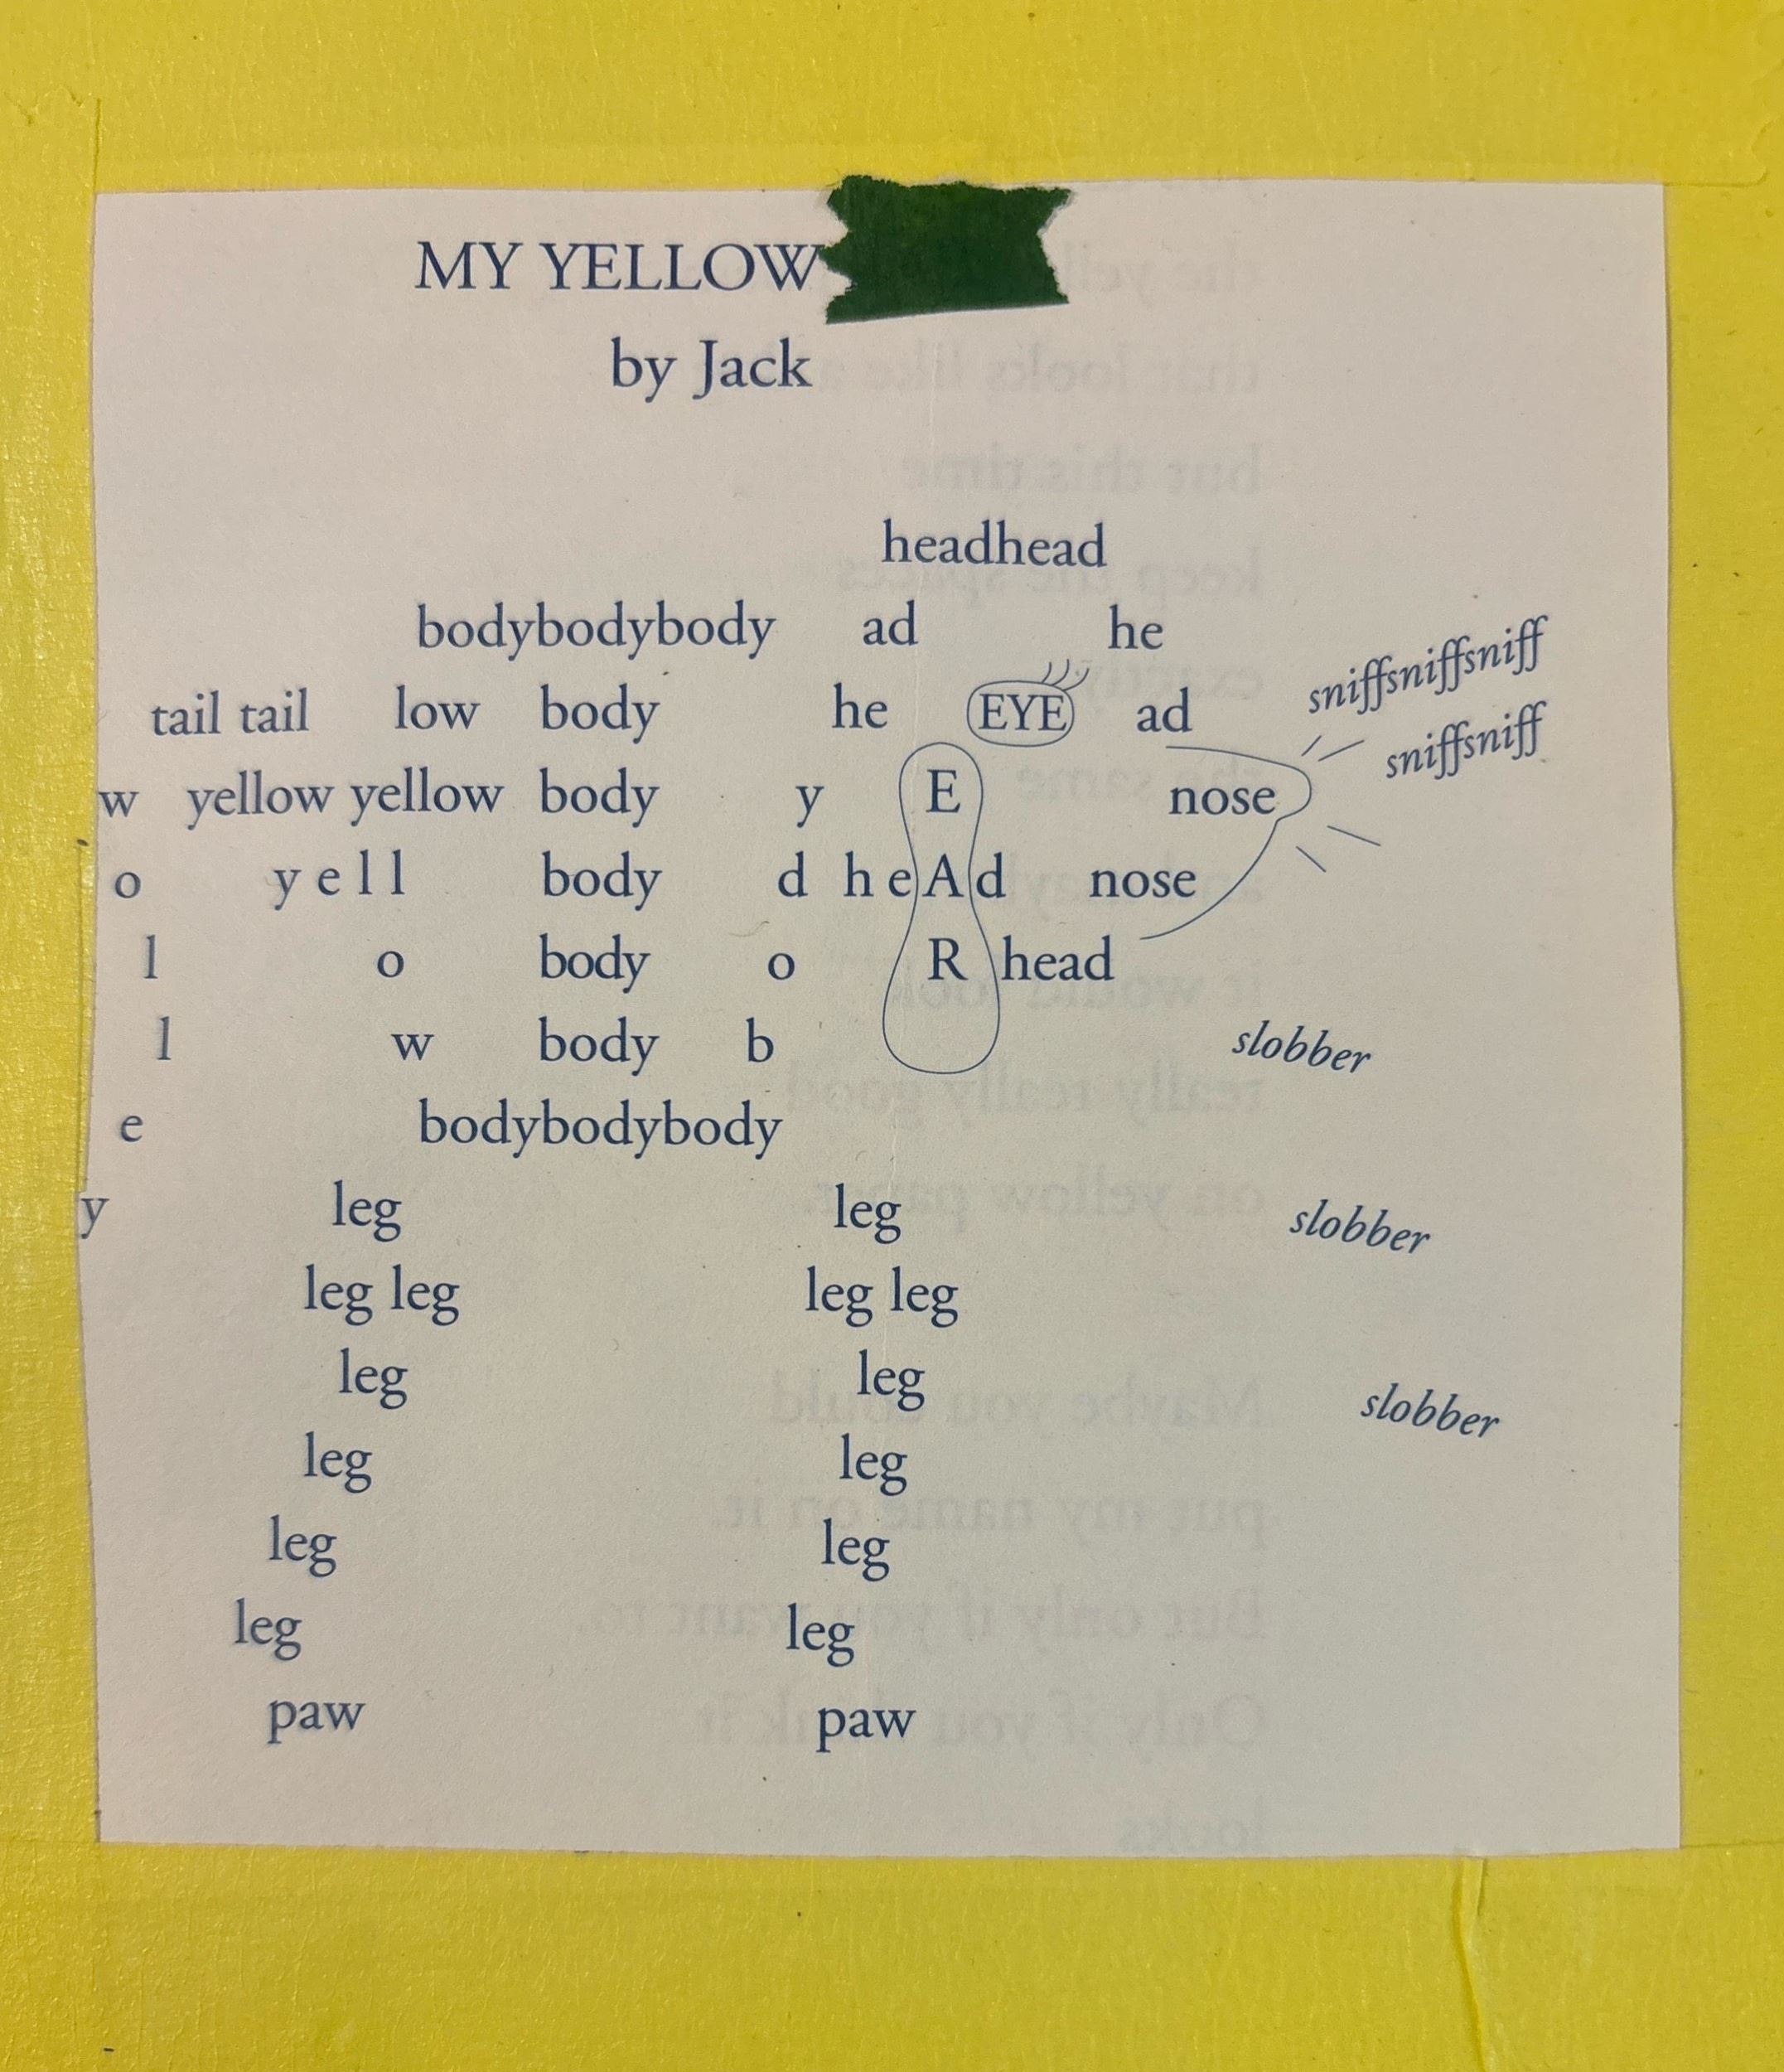 MY YELLOW
by Jack
headhead
bodybodybody ad he
sniffsniffsniff
tail tail low body he EYE ad
sniffsniff
w yellow yellow body y E nose
o y e l l body d h e A d nose
l o body o R head
l w body b slobber
e bodybodybody
y leg leg slobber
leg leg leg leg
leg leg slobber
leg leg
leg leg
leg leg
paw paw